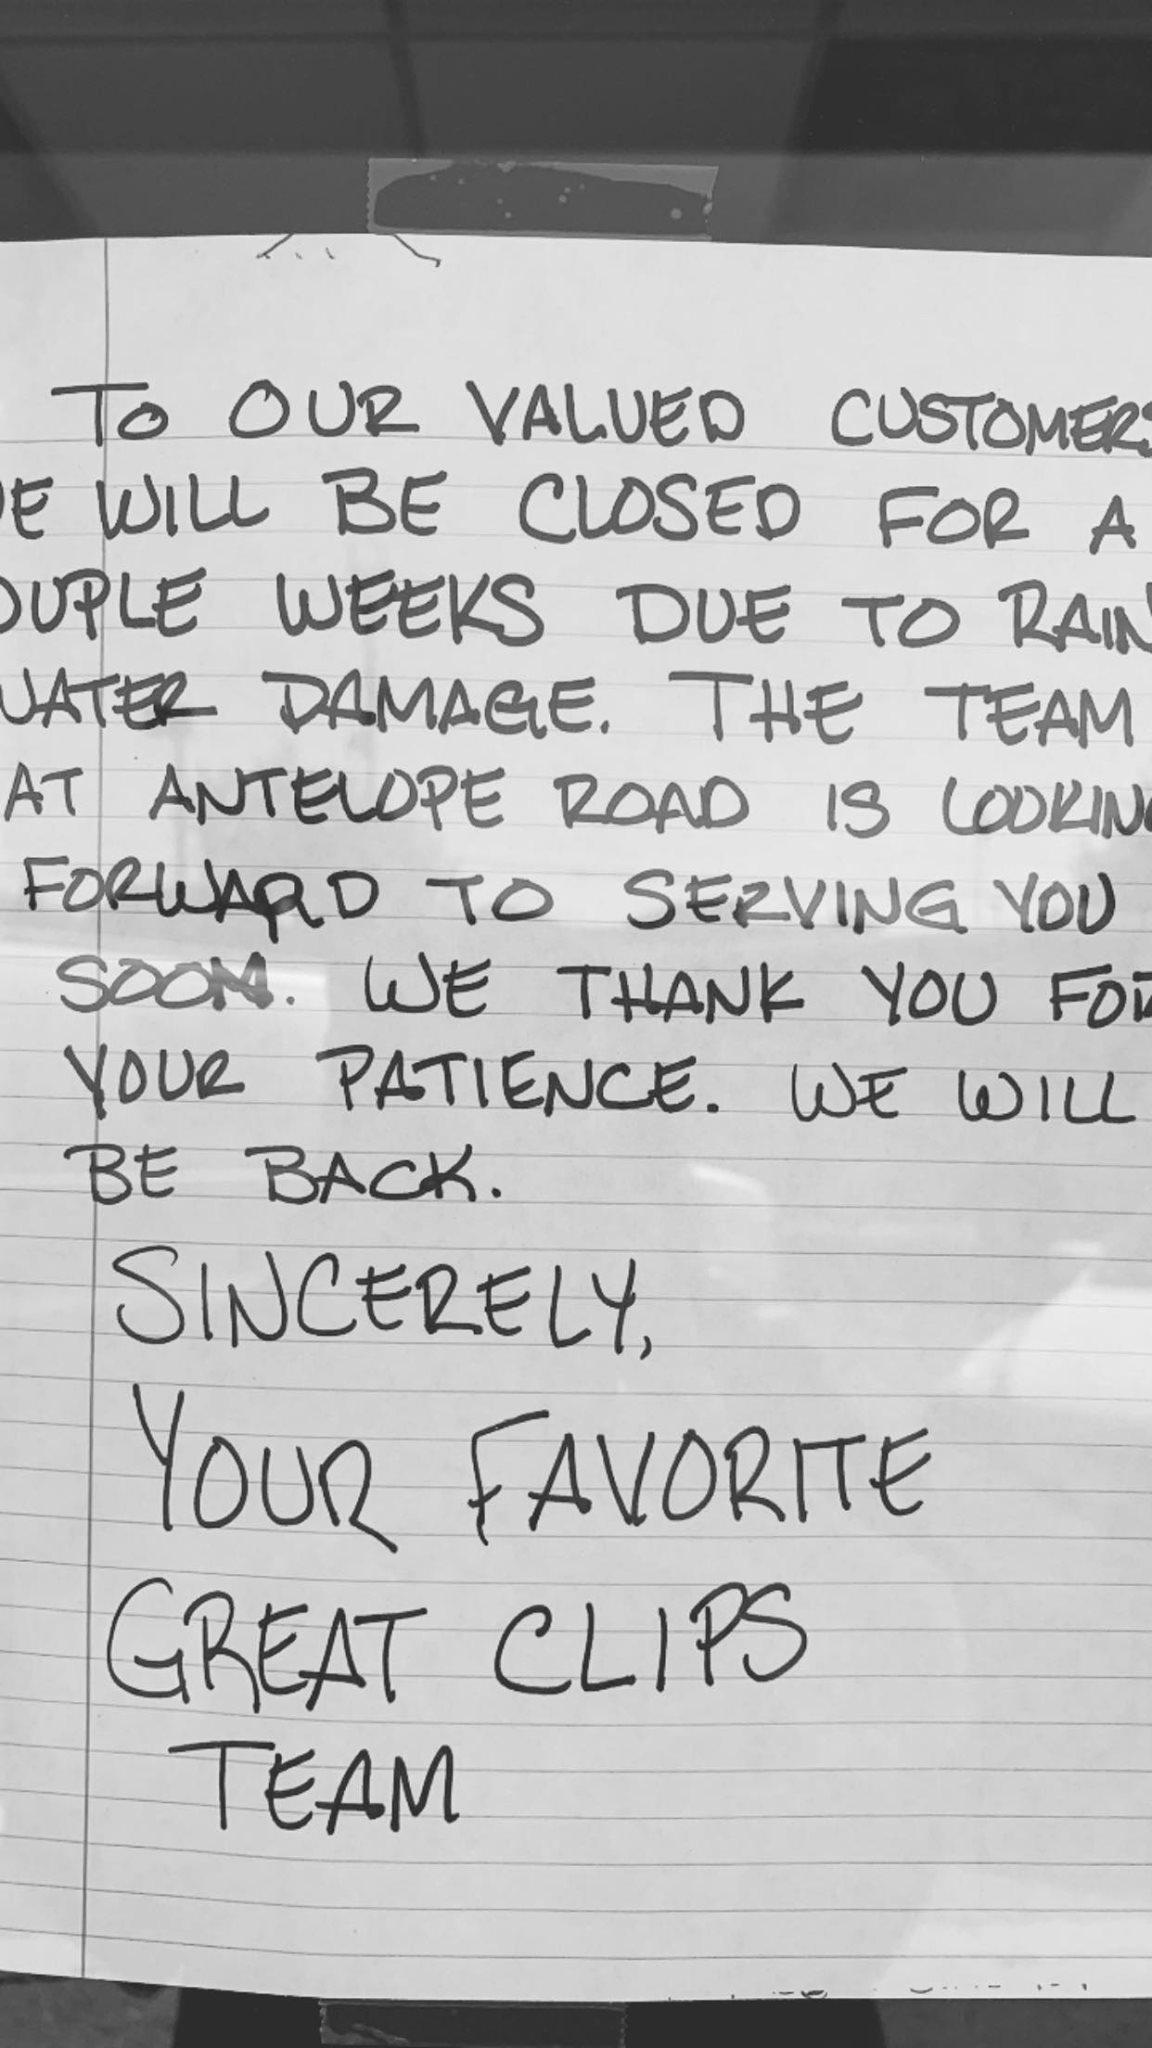 TO OUR VALUED CUSTOMERS
WE WILL BE CLOSED FOR A
COUPLE WEEKS DUE TO RAIN
WATER DAMAGE. THE TEAM
AT ANTELOPE ROAD IS LOOKING
FORWARD TO SERVING YOU
SOON. WE THANK YOU FOR
YOUR PATIENCE. WE WILL
BE BACK.
SINCERELY,
YOUR FAVORITE
GREAT CLIPS
TEAM